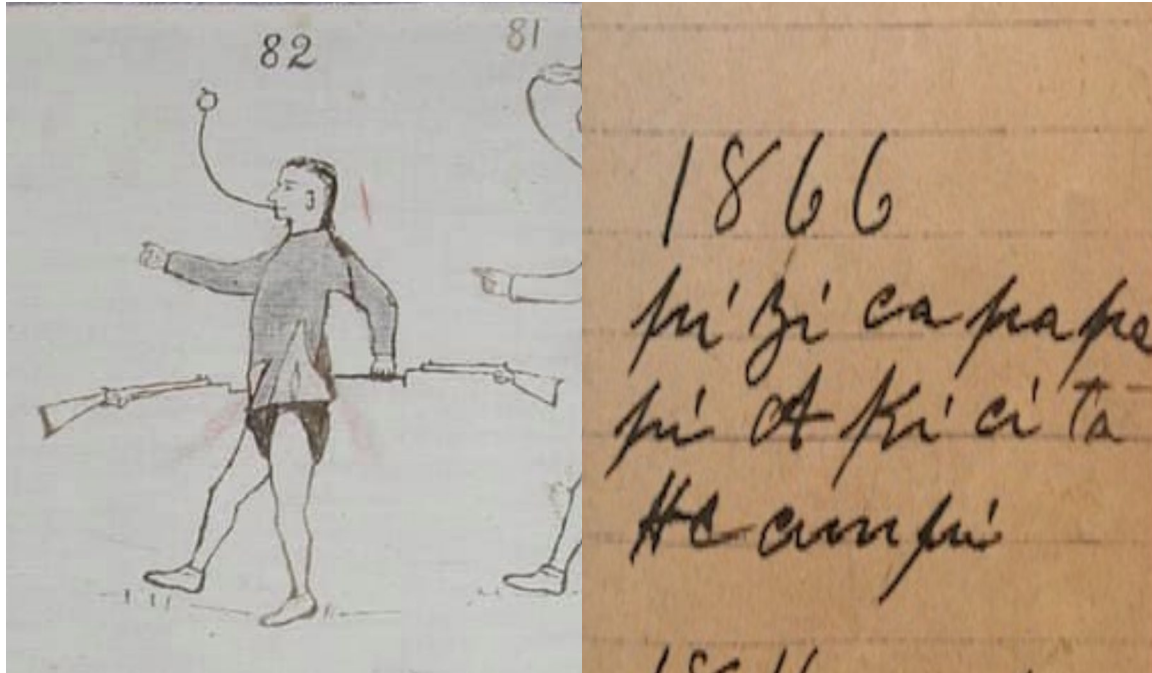 82
81
1866
pi Zi ca papa
pi A Ki ci ta
He cunpi